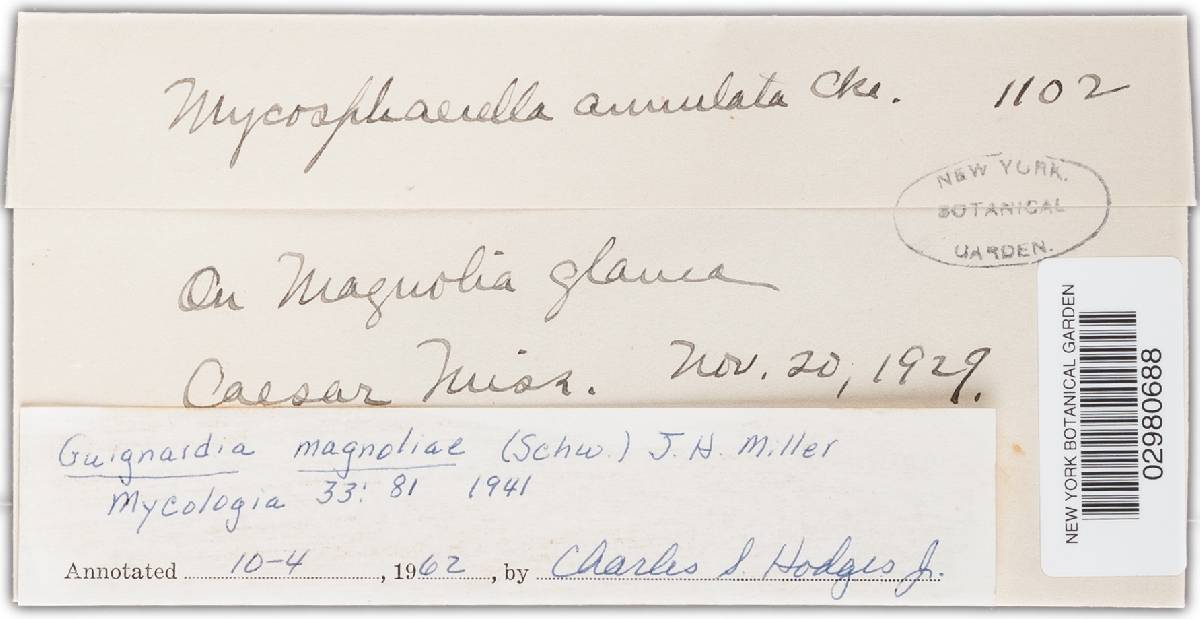 Mycosphaerella annulata Cke. 1102
NEW YORK
BOTANICAL
GARDEN.
On Magnolia glauca
Caesar Miss. Nov. 20, 1929.
Guignardia magnoliae (Schw.) J. H. Miller
Mycologia 33: 81 1941
Annotated 10-4, 1962, by Charles S. Hodges Jr.
NEW YORK BOTANICAL GARDEN
02980688